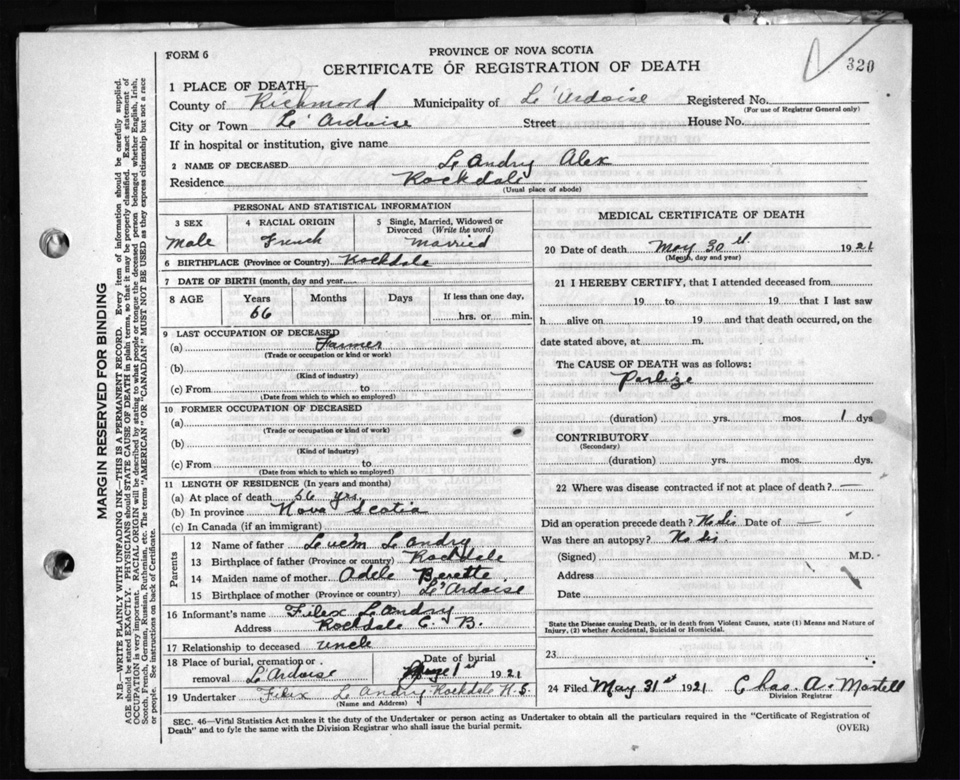 FORM 6
PROVINCE OF NOVA SCOTIA
CERTIFICATE OF REGISTRATION OF DEATH
320
1 PLACE OF DEATH
County of Richmond Municipality of Le'Ardoise Registered No.
(For use of Registrar General only)
City or Town Le'Ardoise Street House No.
If in hospital or institution, give name
2 NAME OF DECEASED LeAndry Alex
Residence Rockdale
(Usual place of abode)
PERSONAL AND STATISTICAL INFORMATION
3 SEX Male
4 RACIAL ORIGIN French
5 Single, Married, Widowed or Divorced (Write the word) Married
6 BIRTHPLACE (Province or Country) Rockdale
7 DATE OF BIRTH (month, day and year)
8 AGE Years Months Days If less than one day,
66 hrs. or min.
9 LAST OCCUPATION OF DECEASED
(a) Farmer
(Trade or occupation or kind or work)
(b)
(Kind of industry)
(c) From to
(Date from which to which so employed)
10 FORMER OCCUPATION OF DECEASED
(a)
(Trade or occupation or kind of work)
(b)
(Kind of industry)
(c) From to
(Date from which to which so employed)
11 LENGTH OF RESIDENCE (In years and months)
(a) At place of death 66 yrs.
(b) In province Nova Scotia
(c) In Canada (if an immigrant)
Parents
12 Name of father LeAndry
13 Birthplace of father (Province or country) Rockdale
14 Maiden name of mother Adele
15 Birthplace of mother (Province or country) Le'Ardoise
16 Informant's name Filex LeAndry
Address Rockdale C. B.
17 Relationship to deceased uncle
18 Place of burial, cremation or removal L'Ardoise
Date of burial 1st 1921
19 Undertaker Filix LeAndry Rockdale N.S.
(Name and Address)
MEDICAL CERTIFICATE OF DEATH
20 Date of death May 30 1921
(Month, day and year)
21 I HEREBY CERTIFY, that I attended deceased from
19 to 19 that I last saw
h alive on 19 and that death occurred, on the
date stated above, at m.
The CAUSE OF DEATH was as follows:
Parlize
(duration) yrs. mos. 1 dys
CONTRIBUTORY
(Secondary)
(duration) yrs. mos. dys.
22 Where was disease contracted if not at place of death? —
Did an operation precede death? Date of —
Was there an autopsy?
(Signed) M.D.
Address
Date
State the Disease causing Death, or in death from Violent Causes, state (1) Means and Nature of
Injury, (2) whether Accidental, Suicidal or Homicidal.
23
24 Filed May 31st 1921 Chas. A. Martell
Division Registrar
SEC. 46—Vital Statistics Act makes it the duty of the Undertaker or person acting as Undertaker to obtain all the particulars required in the "Certificate of Registration of
Death" and to fyle the same with the Division Registrar who shall issue the burial permit.
(OVER)
MARGIN RESERVED FOR BINDING
N.B.—WRITE PLAINLY WITH UNFADING INK—THIS IS A PERMANENT RECORD. Every item of information should be carefully supplied.
AGE should be stated EXACTLY. PHYSICIANS should STATE CAUSE OF DEATH in plain terms, so that it may be properly classified. Exact statement of
OCCUPATION is very important. RACIAL ORIGIN will be described by stating to what people or tongue the deceased person belonged whether English, Irish,
Scotch, French, German, Russian, Ruthenian, etc. The terms "AMERICAN" OR "CANADIAN" MUST NOT BE USED as they express citizenship but not a race
or people. See instructions on back of Certificate.